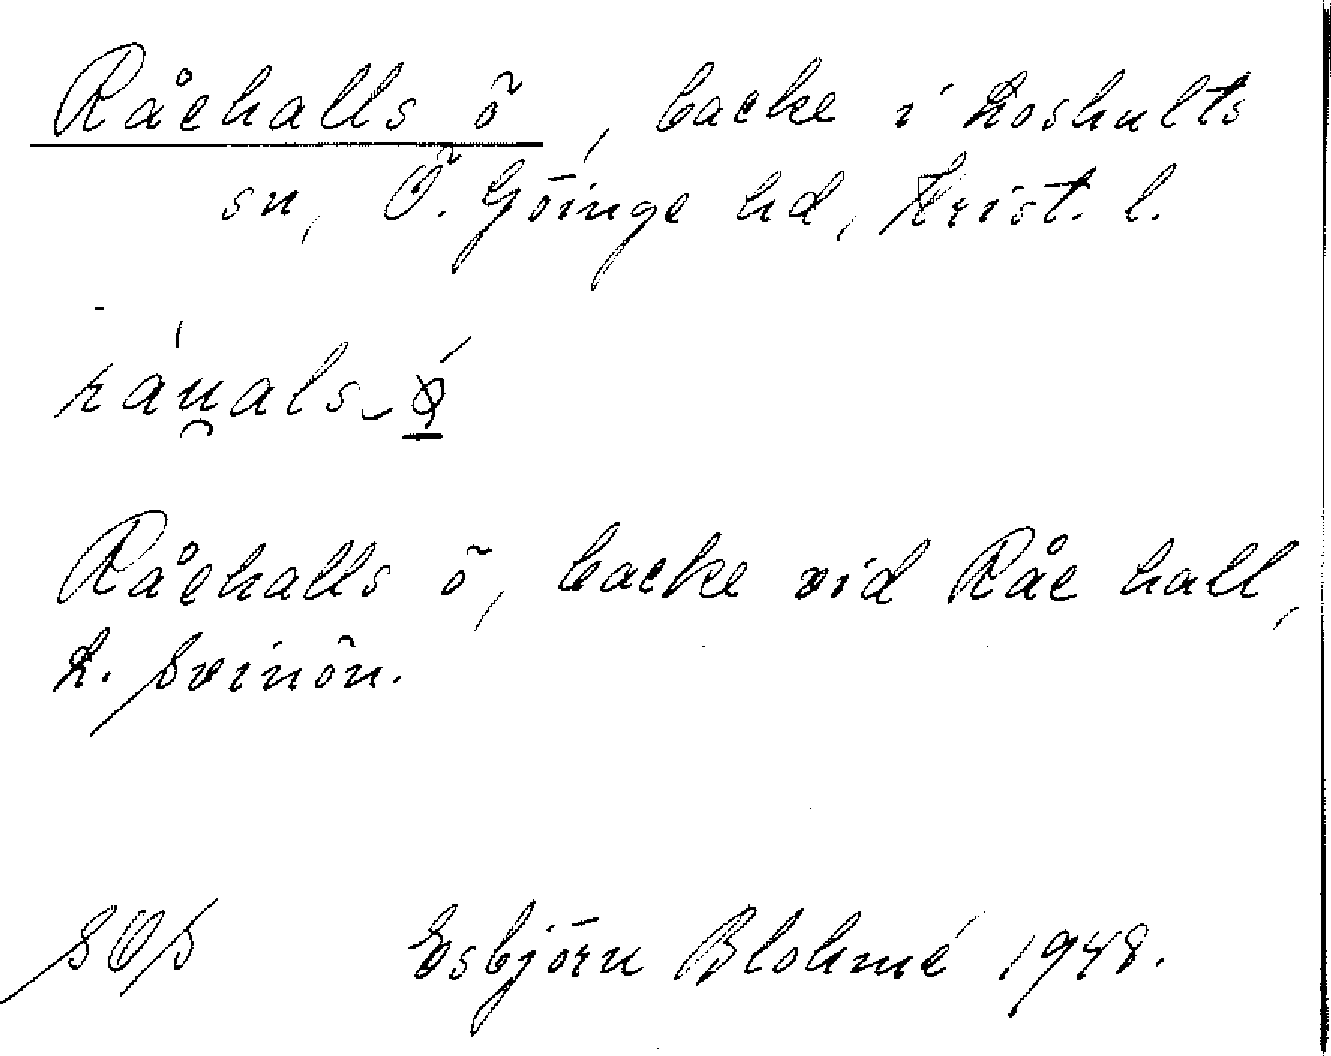 Råehalls ö, backe i Loshults
sn, Ö. Göinge hd, Krist. l.
Råehalls ö, backe vid Råe hall,
L. Svinön.
Esbjörn Blohmé 1948.